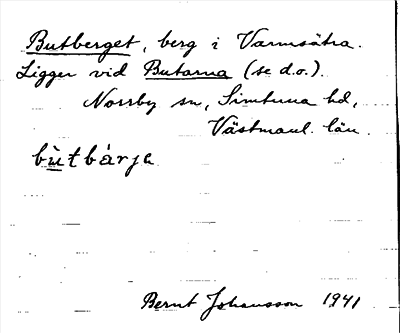 Butberget, berg i Varmsätra.
Ligger vid Butarna (se d.o.).
Norrby sn, Simtuna hd,
Västmanl. län.
bùtbárje
Bernt Johansson 1941